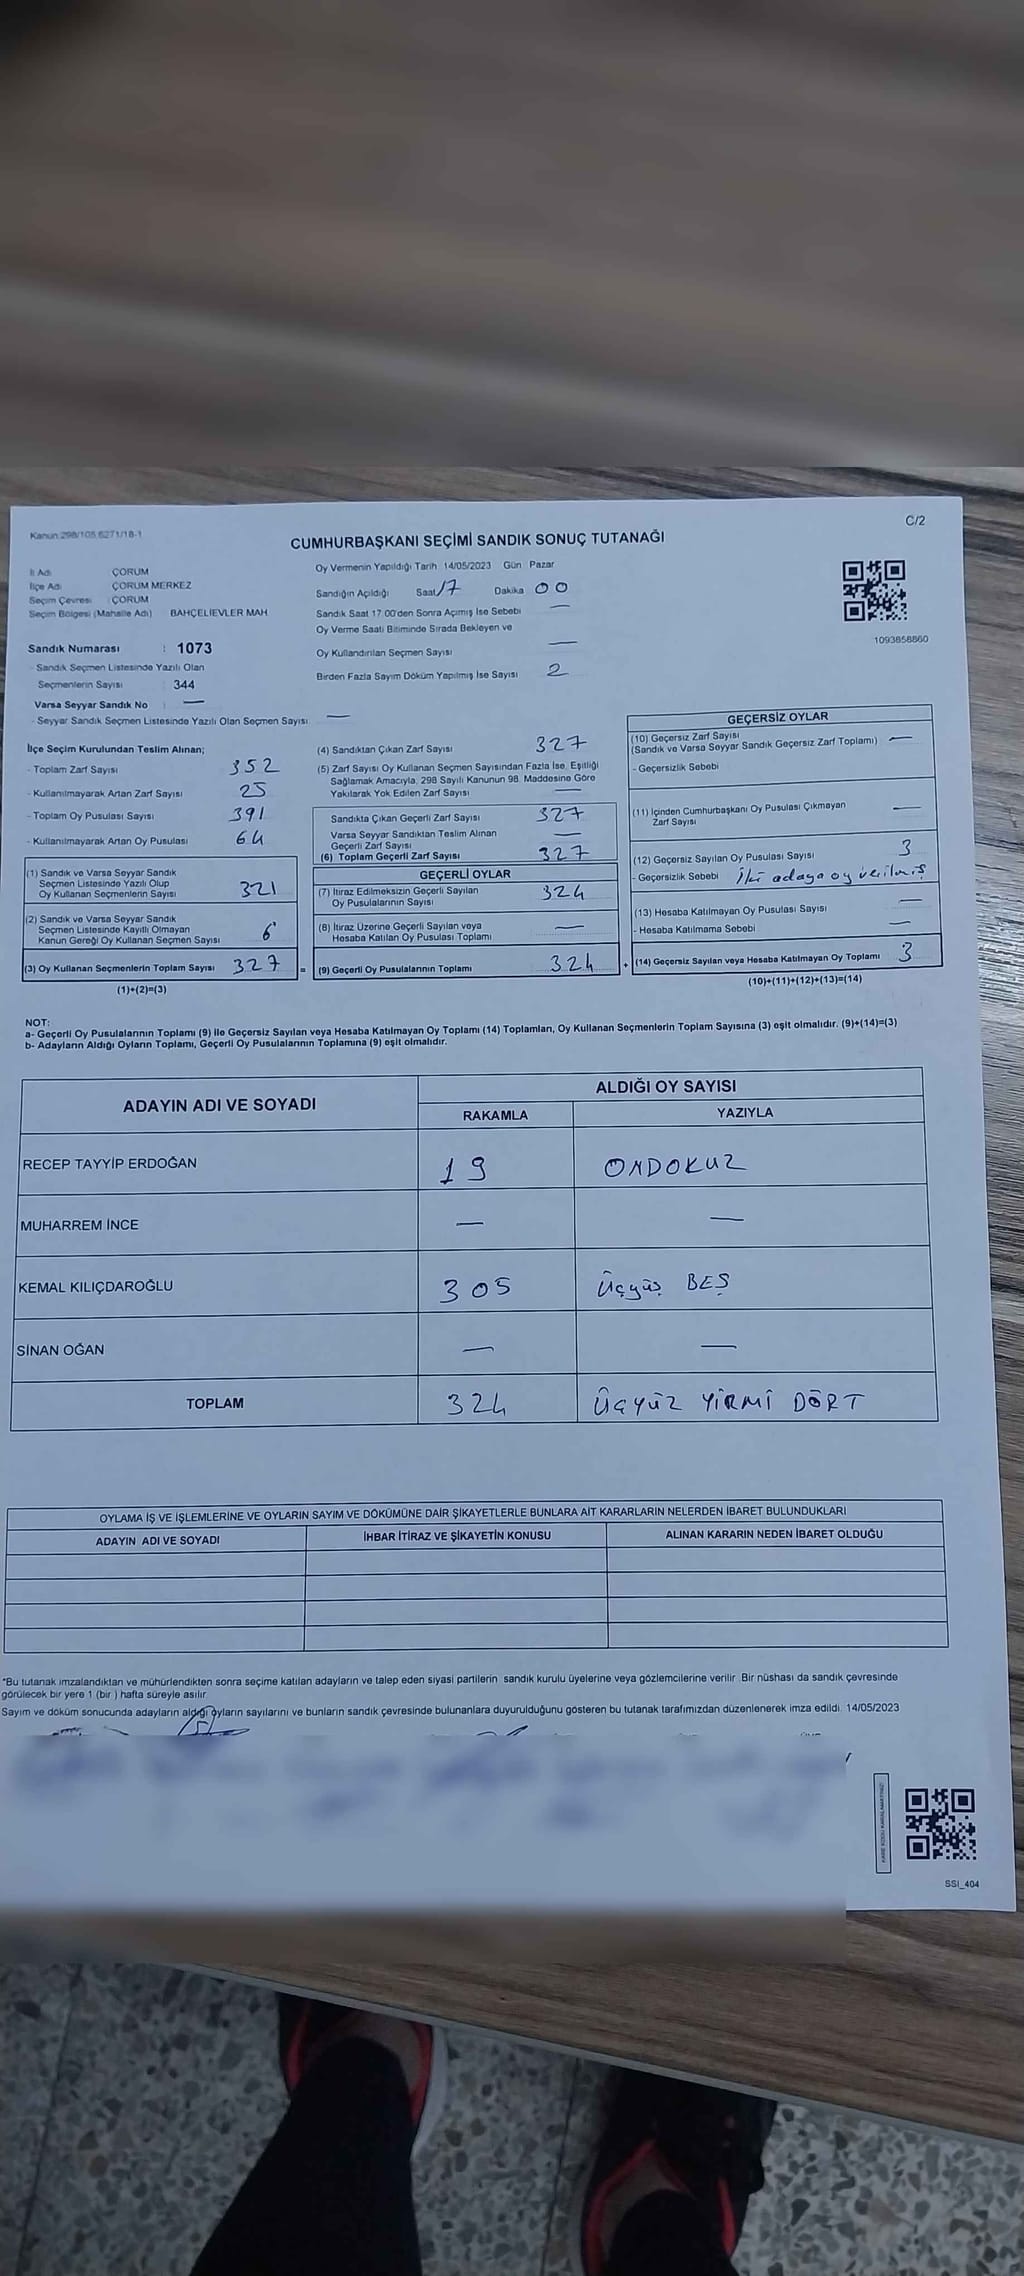 Kanun:298/105,6271/18-1
C/2
CUMHURBAŞKANI SEÇİMİ SANDIK SONUÇ TUTANAĞI
İl Adı ÇORUM
İlçe Adı ÇORUM MERKEZ
Seçim Çevresi : ÇORUM
Seçim Bölgesi (Mahalle Adı) BAHÇELİEVLER MAH
Oy Vermenin Yapıldığı Tarih 14/05/2023 Gün Pazar
Sandığın Açıldığı Saat 17 Dakika 00
Sandık Saat 17.00'den Sonra Açımış İse Sebebi —
Oy Verme Saati Bitiminde Sırada Bekleyen ve
Oy Kullandırılan Seçmen Sayısı —
Birden Fazla Sayım Döküm Yapılmış İse Sayısı 2
1093858860
Sandık Numarası : 1073
- Sandık Seçmen Listesinde Yazılı Olan
Seçmenlerin Sayısı : 344
Varsa Seyyar Sandık No : —
- Seyyar Sandık Seçmen Listesinde Yazılı Olan Seçmen Sayısı —
İlçe Seçim Kurulundan Teslim Alınan;
- Toplam Zarf Sayısı 352
- Kullanılmayarak Artan Zarf Sayısı 25
- Toplam Oy Pusulası Sayısı 391
- Kullanılmayarak Artan Oy Pusulası 64
(1) Sandık ve Varsa Seyyar Sandık
Seçmen Listesinde Yazılı Olup
Oy Kullanan Seçmenlerin Sayısı 321
(2) Sandık ve Varsa Seyyar Sandık
Seçmen Listesinde Kayıtlı Olmayan
Kanun Gereği Oy Kullanan Seçmen Sayısı 6
(3) Oy Kullanan Seçmenlerin Toplam Sayısı 327 =
(1)+(2)=(3)
(4) Sandıktan Çıkan Zarf Sayısı 327
(5) Zarf Sayısı Oy Kullanan Seçmen Sayısından Fazla İse, Eşitliği
Sağlamak Amacıyla, 298 Sayılı Kanunun 98. Maddesine Göre
Yakılarak Yok Edilen Zarf Sayısı —
Sandıkta Çıkan Geçerli Zarf Sayısı 327
Varsa Seyyar Sandıktan Teslim Alınan
Geçerli Zarf Sayısı —
(6) Toplam Geçerli Zarf Sayısı 327
GEÇERLİ OYLAR
(7) İtiraz Edilmeksizin Geçerli Sayılan
Oy Pusulalarının Sayısı 324
(8) İtiraz Üzerine Geçerli Sayılan veya
Hesaba Katılan Oy Pusulası Toplamı —
(9) Geçerli Oy Pusulalarının Toplamı 324 +
GEÇERSİZ OYLAR
(10) Geçersiz Zarf Sayısı
(Sandık ve Varsa Seyyar Sandık Geçersiz Zarf Toplamı) —
- Geçersizlik Sebebi
(11) İçinden Cumhurbaşkanı Oy Pusulası Çıkmayan
Zarf Sayısı —
(12) Geçersiz Sayılan Oy Pusulası Sayısı 3
- Geçersizlik Sebebi İki adaya oy verilmiş
(13) Hesaba Katılmayan Oy Pusulası Sayısı —
- Hesaba Katılmama Sebebi —
(14) Geçersiz Sayılan veya Hesaba Katılmayan Oy Toplamı 3
(10)+(11)+(12)+(13)=(14)
NOT:
a- Geçerli Oy Pusulalarının Toplamı (9) ile Geçersiz Sayılan veya Hesaba Katılmayan Oy Toplamı (14) Toplamları, Oy Kullanan Seçmenlerin Toplam Sayısına (3) eşit olmalıdır. (9)+(14)=(3)
b- Adayların Aldığı Oyların Toplamı, Geçerli Oy Pusulalarının Toplamına (9) eşit olmalıdır.
ADAYIN ADI VE SOYADI ALDIĞI OY SAYISI
RAKAMLA YAZIYLA
RECEP TAYYİP ERDOĞAN 19 ONDOKUZ
MUHARREM İNCE — —
KEMAL KILIÇDAROĞLU 305 ÜçyüS BEŞ
SİNAN OĞAN — —
TOPLAM 324 ÜÇYÜZ YİRMİ DÖRT
OYLAMA İŞ VE İŞLEMLERİNE VE OYLARIN SAYIM VE DÖKÜMÜNE DAİR ŞİKAYETLERLE BUNLARA AİT KARARLARIN NELERDEN İBARET BULUNDUKLARI
ADAYIN ADI VE SOYADI İHBAR İTİRAZ VE ŞİKAYETİN KONUSU ALINAN KARARIN NEDEN İBARET OLDUĞU
*Bu tutanak imzalandıktan ve mühürlendikten sonra seçime katılan adayların ve talep eden siyasi partilerin sandık kurulu üyelerine veya gözlemcilerine verilir. Bir nüshası da sandık çevresinde
görülecek bir yere 1 (bir ) hafta süreyle asılır.
Sayım ve döküm sonucunda adayların aldığı oyların sayılarını ve bunların sandık çevresinde bulunanlara duyurulduğunu gösteren bu tutanak tarafımızdan düzenlenerek imza edildi. 14/05/2023
SSI_404